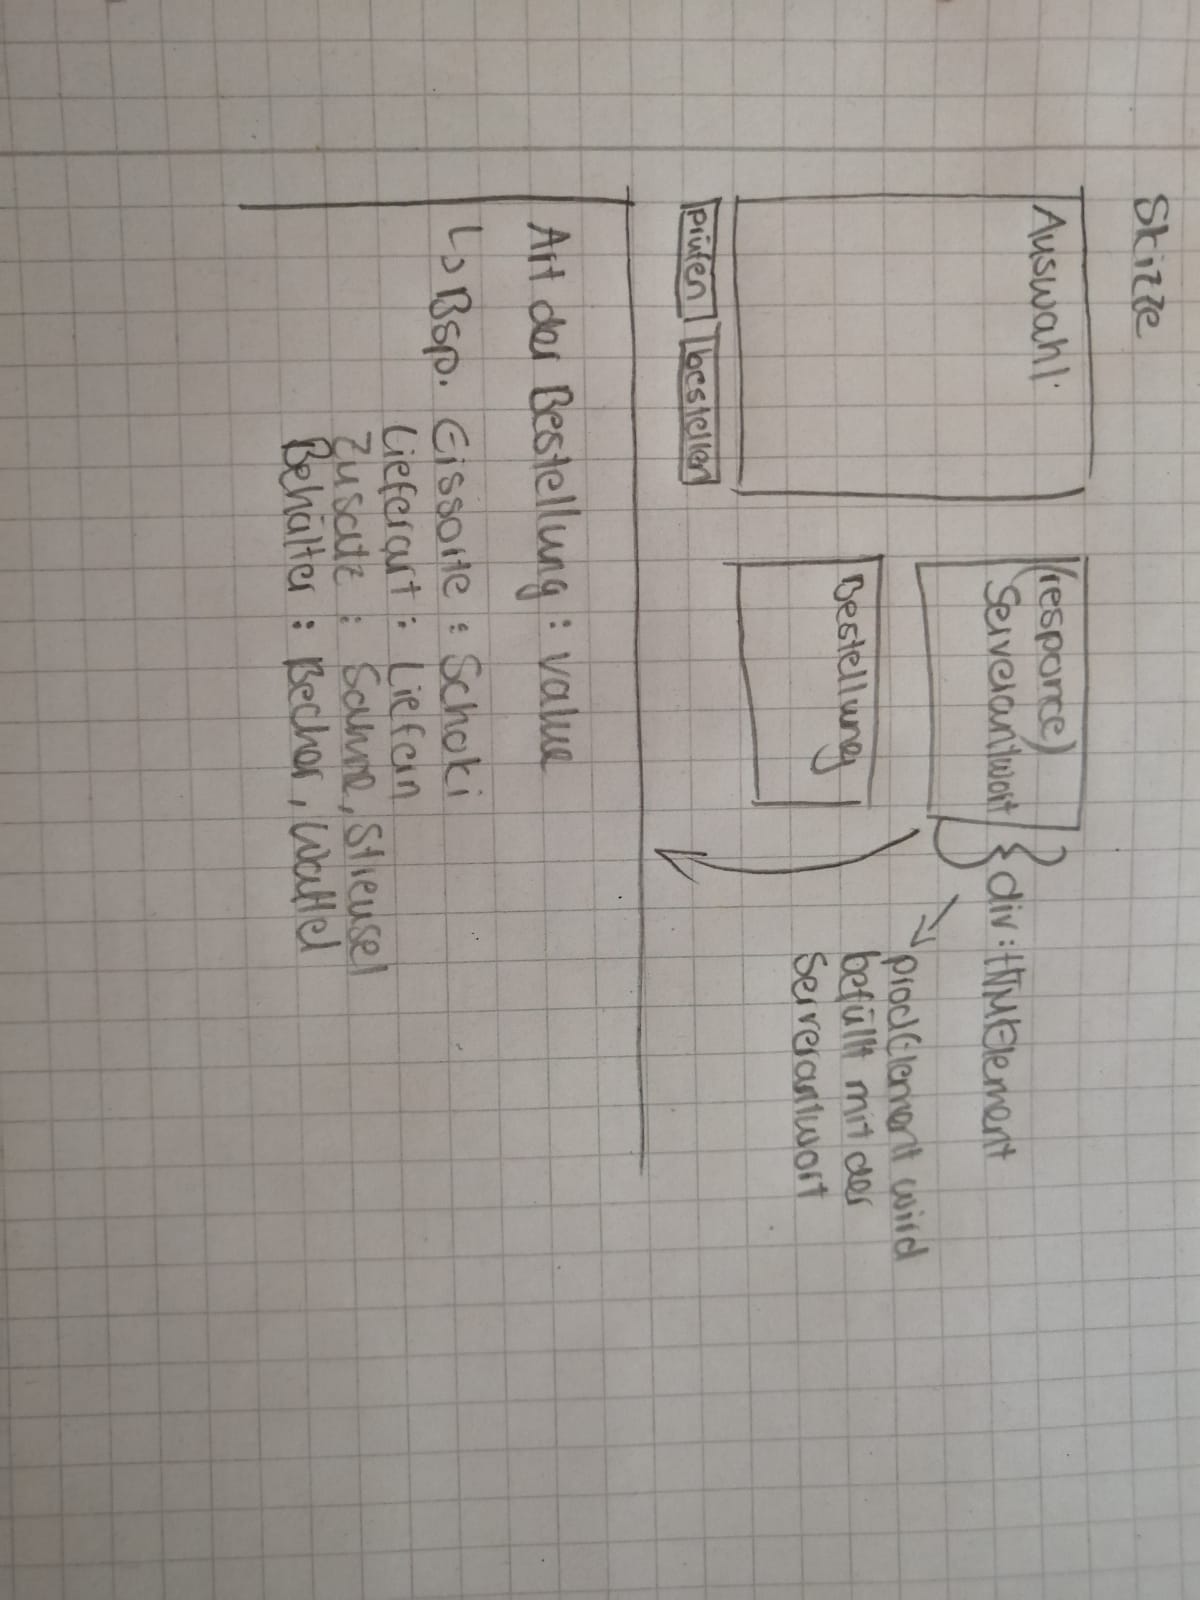 Skizze
Auswahl
(responce)
Serverantwort
div:HTMElement
prodElement wird
befüllt mit der
Serverantwort
Bestellung
prüfen
bestellen
Art der Bestellung: value
↳ Bsp. Eissorte: Schoki
Lieferart: Liefern
Zusatz: Sahne, Streusel
Behälter: Becher, Waffel